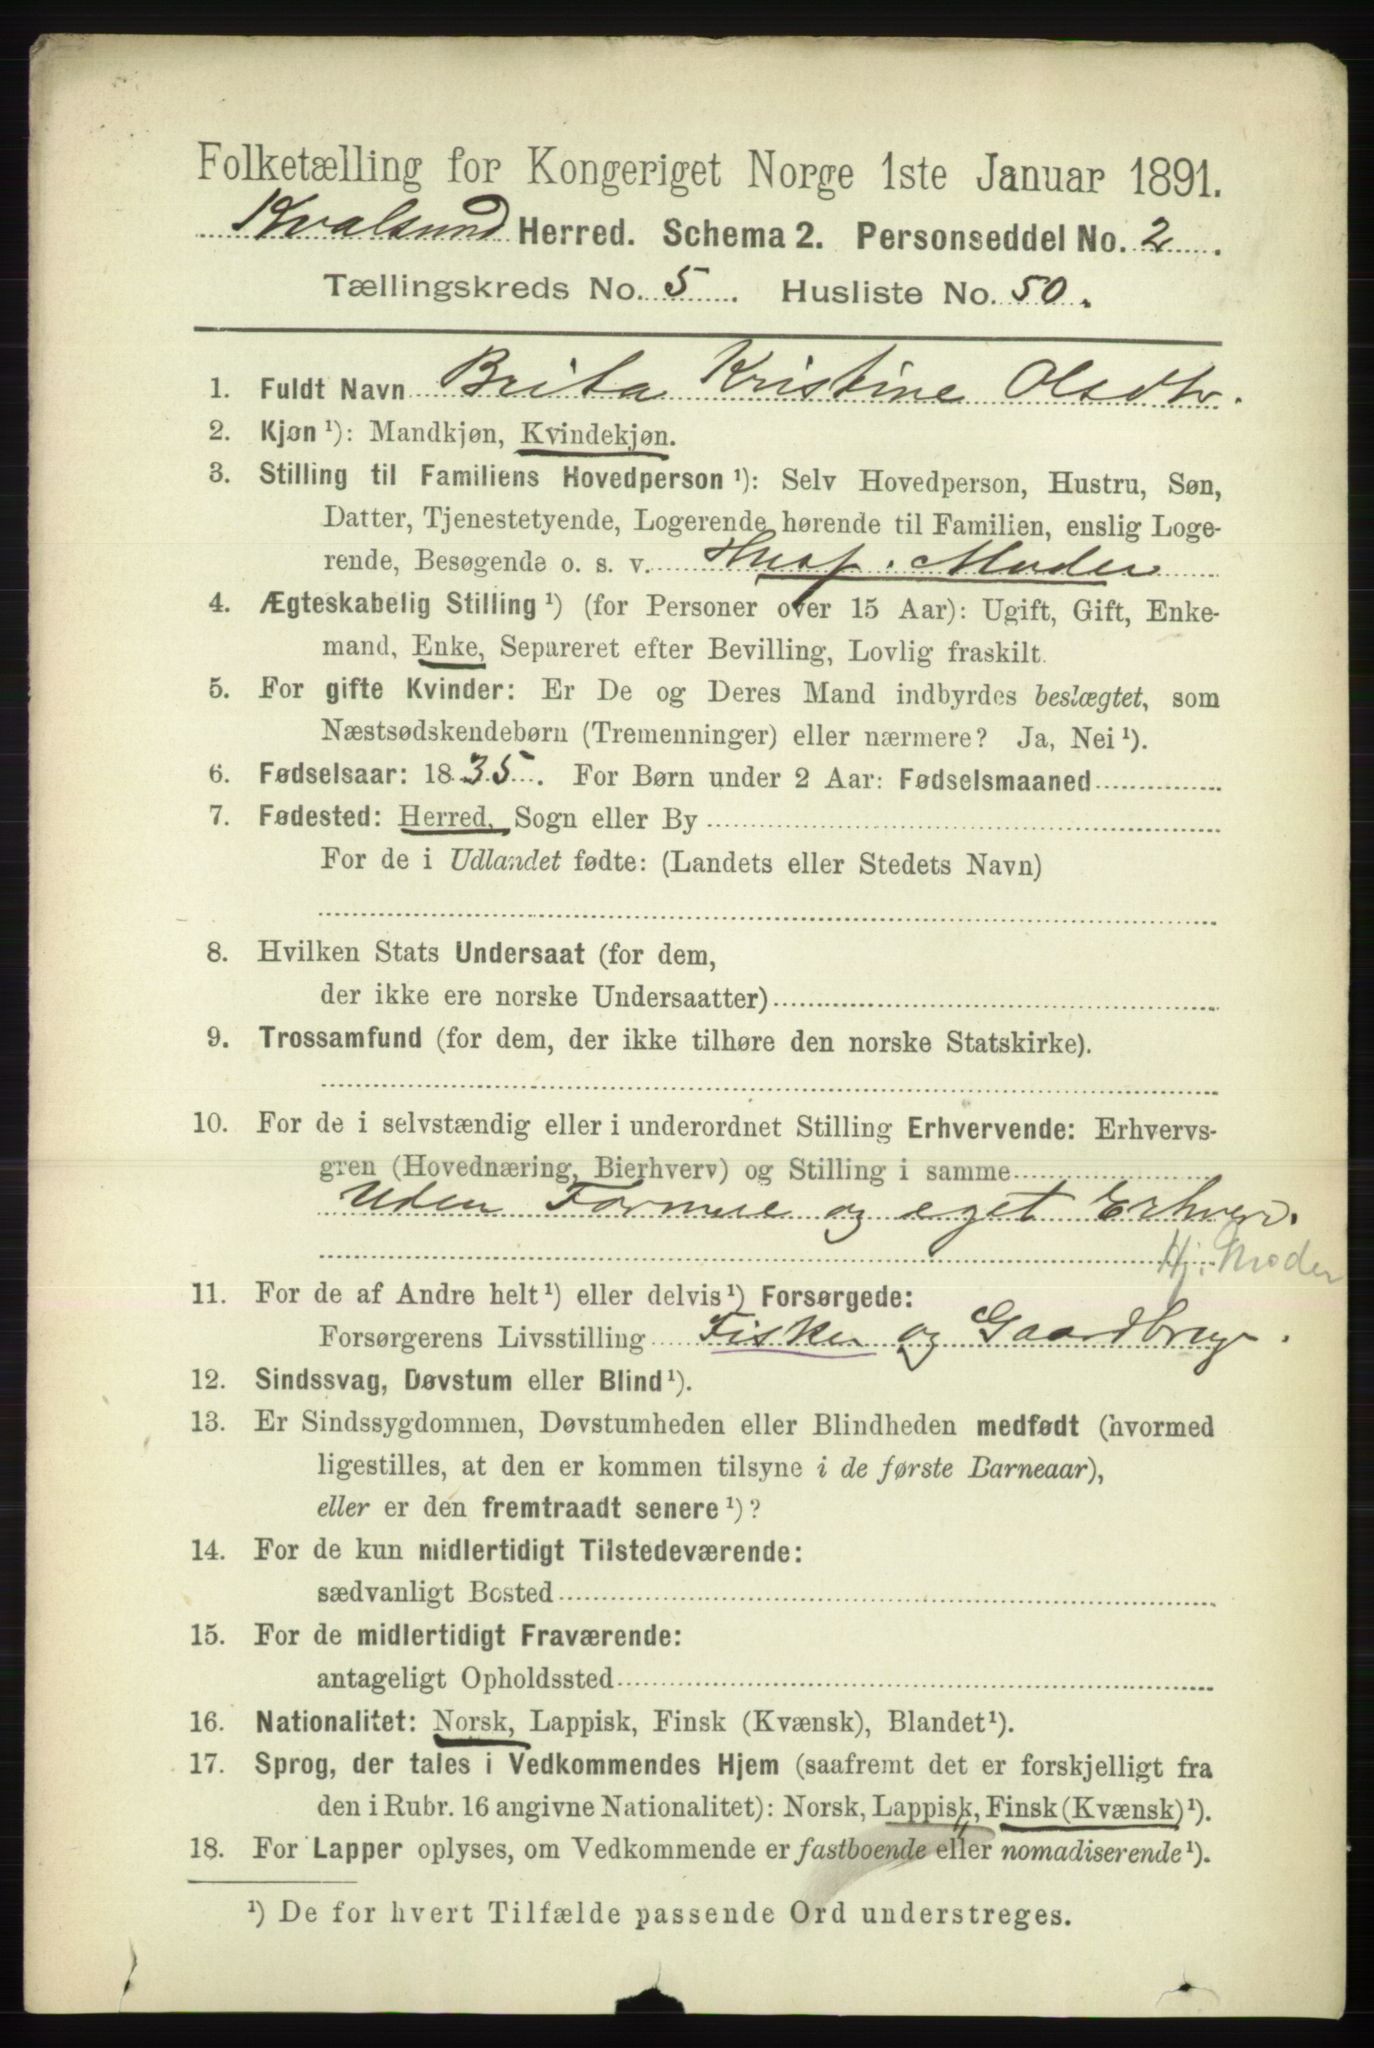 Folketælling for Kongeriget Norge 1ste Januar 1891.
Kvalsund Herred. Schema 2. Personseddel No. 2.
Tællingskreds No. 5. Husliste No. 50.
1. Fuldt Navn Brita Kristine Olsdtr.
2. Kjøn ¹): Mandkjøn, Kvindekjøn.
3. Stilling til Familiens Hovedperson ¹): Selv Hovedperson, Hustru, Søn,
Datter, Tjenestetyende, Logerende hørende til Familien, enslig Loge-
rende, Besøgende o. s. v. Husf. Moder
4. Ægteskabelig Stilling ¹) (for Personer over 15 Aar): Ugift, Gift, Enke-
mand, Enke, Separeret efter Bevilling, Lovlig fraskilt.
5. For gifte Kvinder: Er De og Deres Mand indbyrdes beslægtet, som
Næstsødskendebørn (Tremenninger) eller nærmere? Ja, Nei ¹).
6. Fødselsaar: 1835. For Børn under 2 Aar: Fødselsmaaned
7. Fødested: Herred, Sogn eller By
For de i Udlandet fødte: (Landets eller Stedets Navn)
8. Hvilken Stats Undersaat (for dem,
der ikke ere norske Undersaatter)
9. Trossamfund (for dem, der ikke tilhøre den norske Statskirke).
10. For de i selvstændig eller i underordnet Stilling Erhvervende: Erhvervs-
gren (Hovednæring, Bierhverv) og Stilling i samme
Uden Formue og eget Erhverv.
Hj. Moder
11. For de af Andre helt ¹) eller delvis ¹) Forsørgede:
Forsørgerens Livsstilling Fisker og Gaardbrug.
12. Sindssvag, Døvstum eller Blind ¹).
13. Er Sindssygdommen, Døvstumheden eller Blindheden medfødt (hvormed
ligestilles, at den er kommen tilsyne i de første Barneaar),
eller er den fremtraadt senere ¹)?
14. For de kun midlertidigt Tilstedeværende:
sædvanligt Bosted
15. For de midlertidigt Fraværende:
antageligt Opholdssted
16. Nationalitet: Norsk, Lappisk, Finsk (Kvænsk), Blandet ¹).
17. Sprog, der tales i Vedkommendes Hjem (saafremt det er forskjelligt fra
den i Rubr. 16 angivne Nationalitet): Norsk, Lappisk, Finsk (Kvænsk) ¹).
18. For Lapper oplyses, om Vedkommende er fastboende eller nomadiserende ¹).
¹) De for hvert Tilfælde passende Ord understreges.